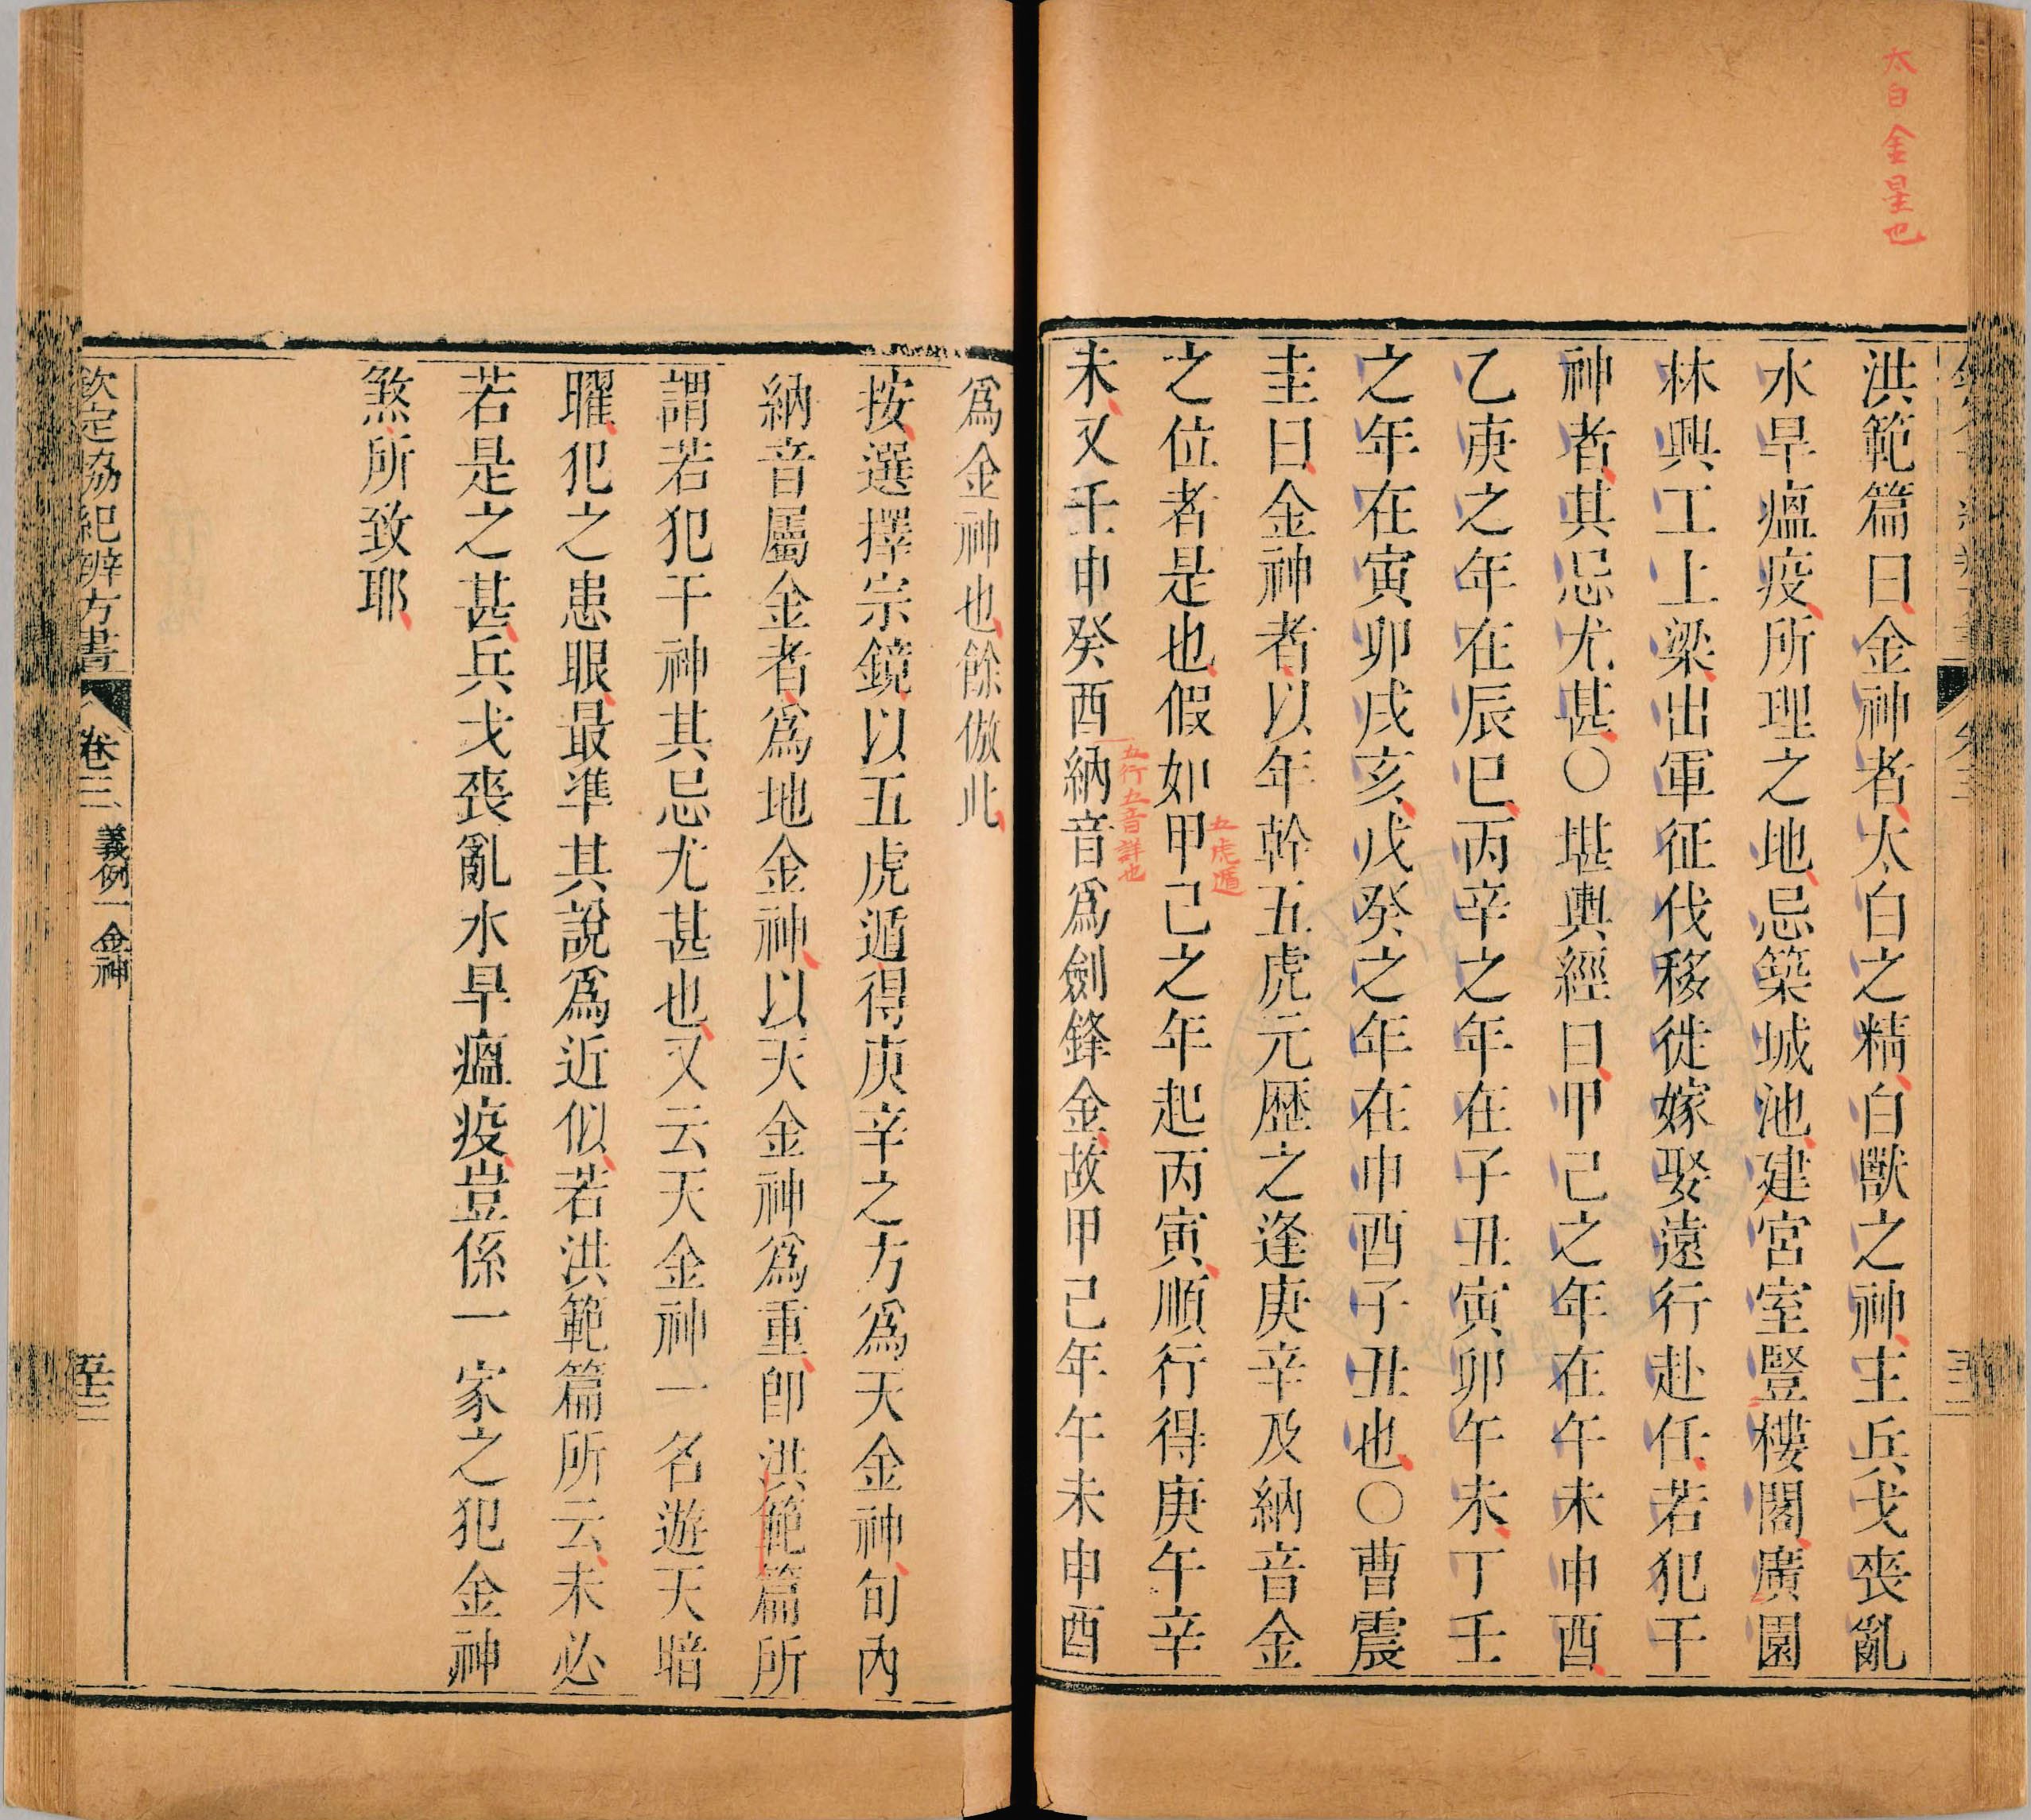 太白金星也
洪範篇曰金神者太白之精白獸之神主兵戈喪亂
水旱瘟疫所理之地忌築城池建宮室豎樓閣廣園
林興工上梁出軍征伐移徙嫁娶遠行赴任若犯干
神者其忌尤甚○堪輿經曰甲己之年在午未申酉
乙庚之年在辰巳丙辛之年在子丑寅卯午未丁壬
之年在寅卯戌亥戊癸之年在申酉子丑也○曹震
圭曰金神者以年幹五虎元歷之逢庚辛及納音金
之位者是也假如甲己之年起丙寅順行得庚午辛
五虎遁
未又壬申癸酉納音為劍鋒金故甲己年午未申酉
五行五音詳也
為金神也餘倣此
按選擇宗鏡以五虎遁得庚辛之方為天金神旬內
納音屬金者為地金神以天金神為重卽洪範篇所
謂若犯干神其忌尤甚也又云天金神一名遊天暗
曜犯之患眼最準其說為近似若洪範篇所云未必
若是之甚兵戈喪亂水旱瘟疫豈係一家之犯金神
煞所致耶
欽定協紀辨方書 卷三 義例一 金神 五十三